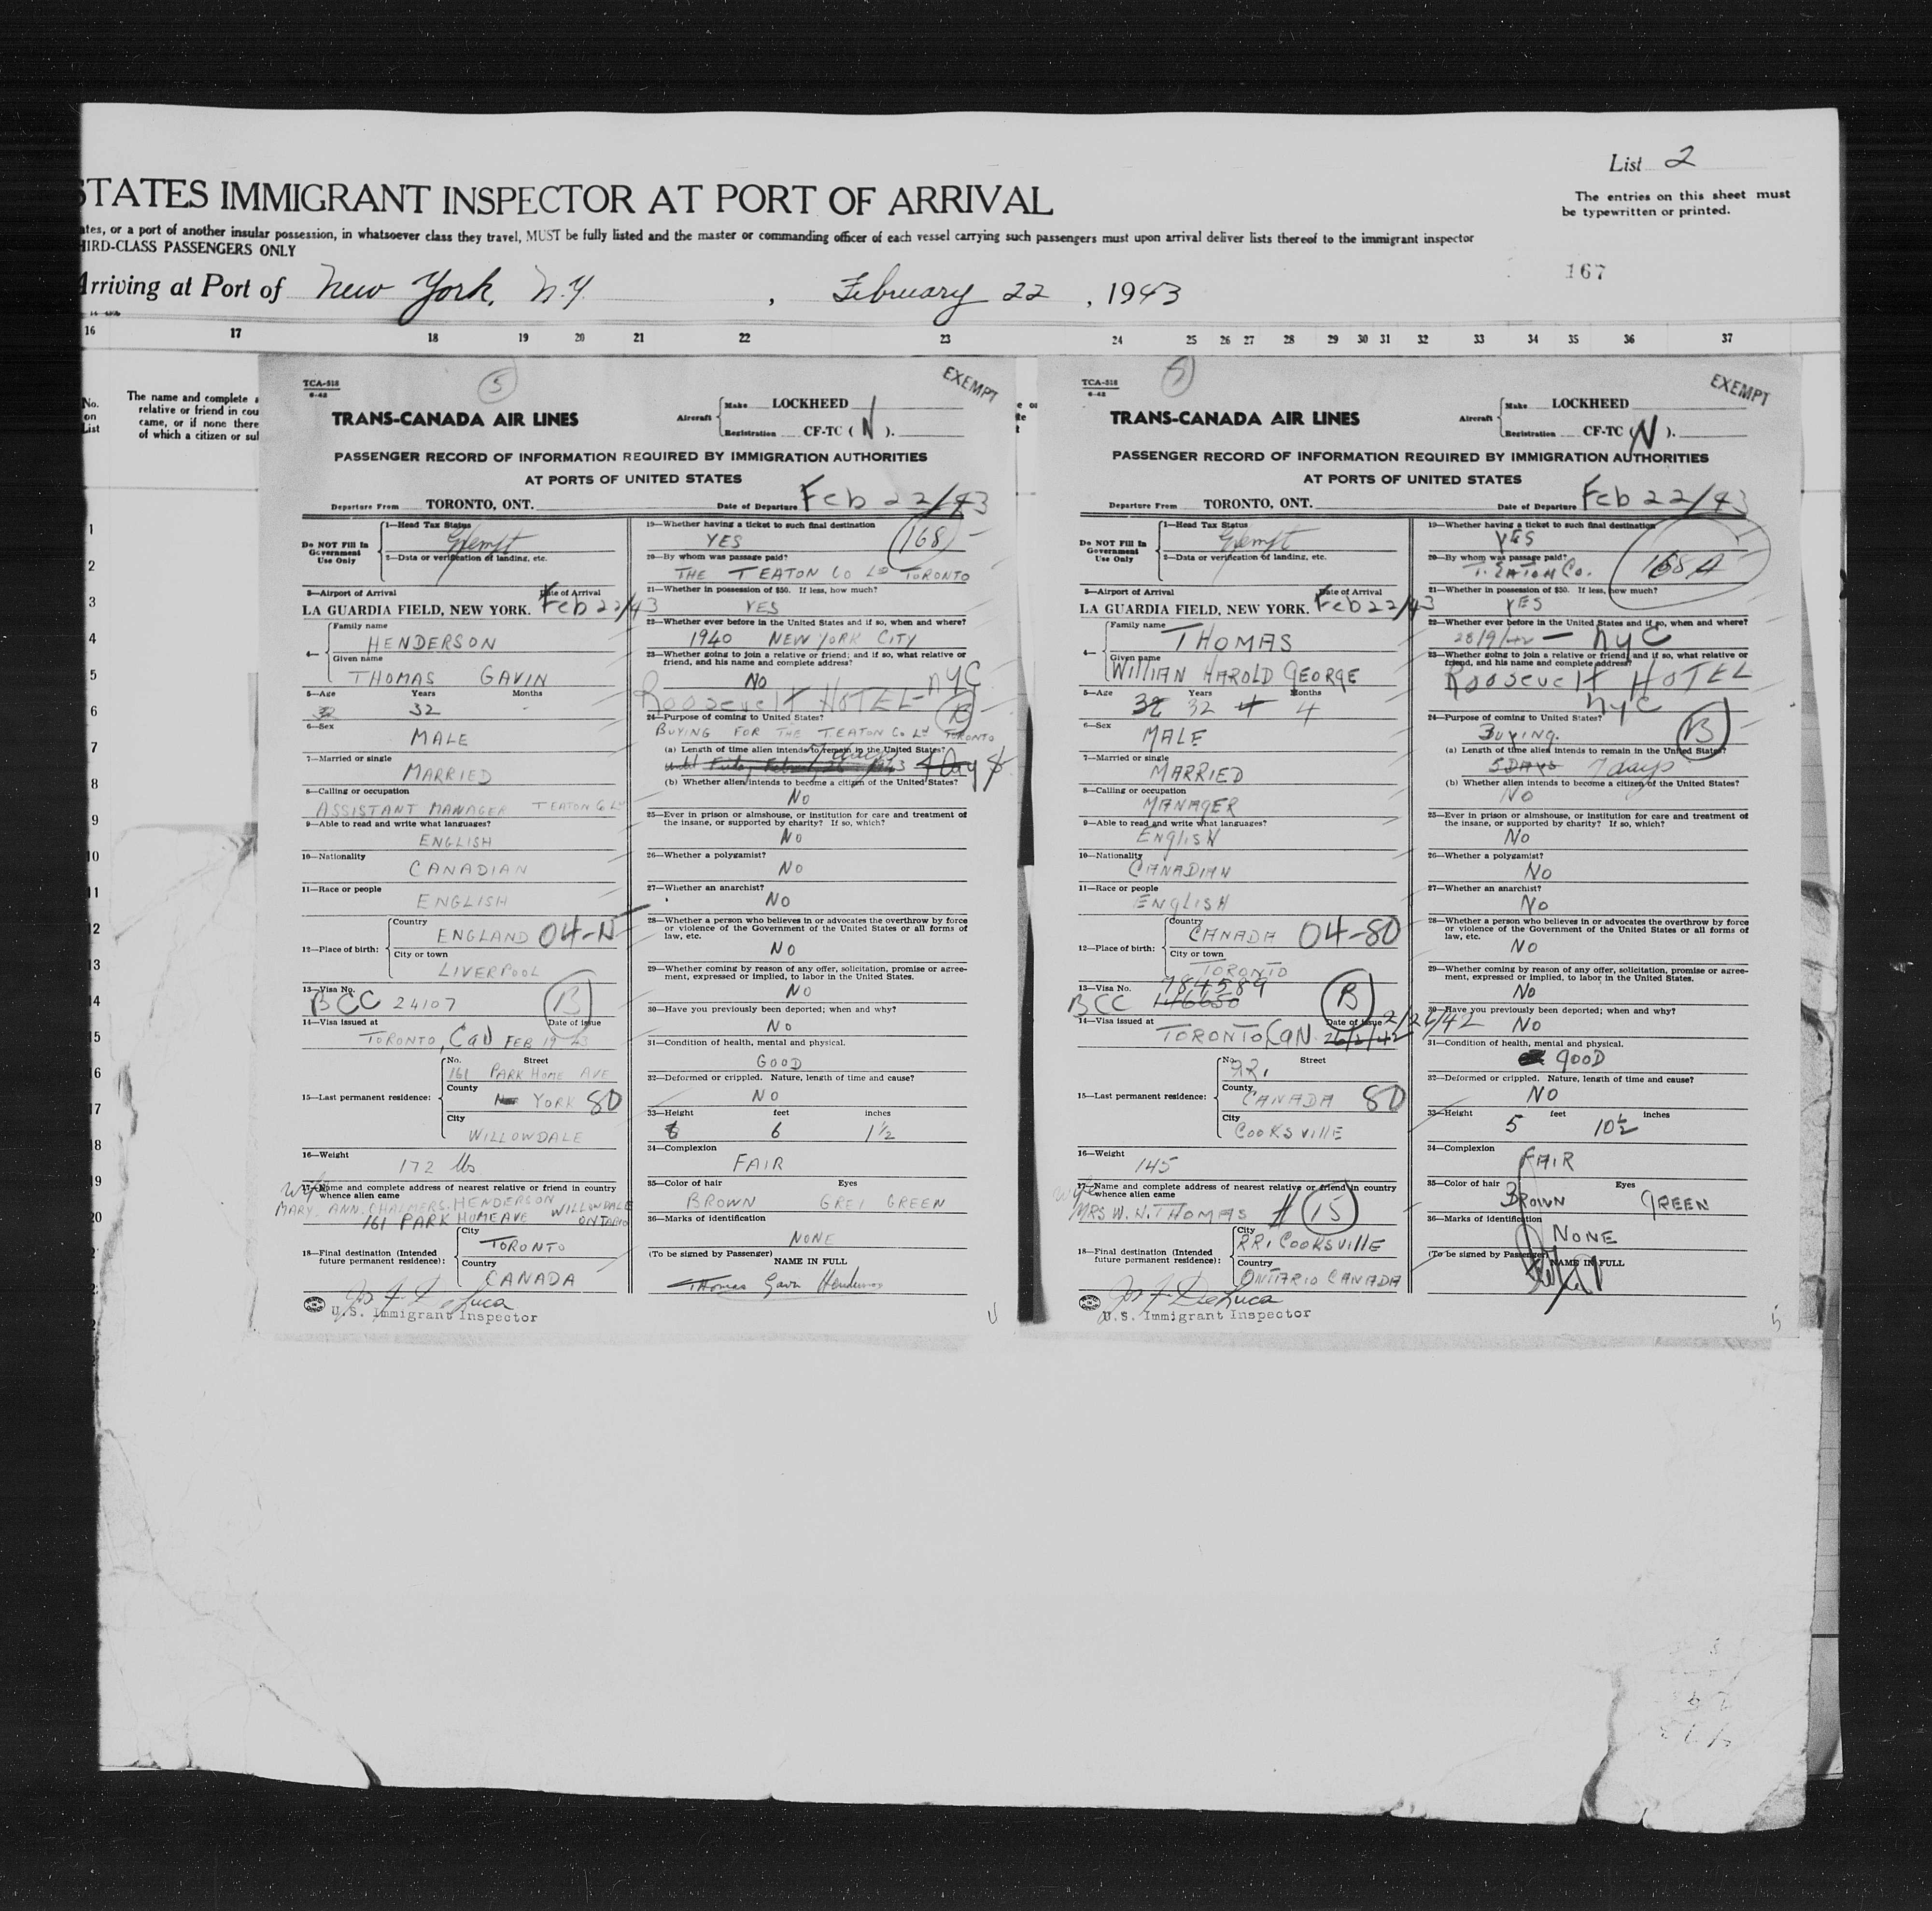 List 2
STATES IMMIGRANT INSPECTOR AT PORT OF ARRIVAL
The entries on this sheet must
be typewritten or printed.
ates, or a port of another insular possession, in whatsoever class they travel, MUST be fully listed and the master or commanding officer of each vessel carrying such passengers must upon arrival deliver lists thereof to the immigrant inspector
HIRD-CLASS PASSENGERS ONLY
167
Arriving at Port of New York, N.Y. , February 22 , 1943
16 17 18 19 20 21 22 23 24 25 26 27 28 29 30 31 32 33 34 35 36 37
No.
on
List
The name and complete a
relative or friend in cou
came, or if none there
of which a citizen or sul
1
2
3
4
5
6
7
8
9
10
11
12
13
14
15
16
17
18
19
20
TCA-518
6-42
5
EXEMPT
TRANS-CANADA AIR LINES
Aircraft Make LOCKHEED
Registration CF-TC ( N ).
PASSENGER RECORD OF INFORMATION REQUIRED BY IMMIGRATION AUTHORITIES
AT PORTS OF UNITED STATES
Departure From TORONTO, ONT. Date of Departure Feb 22/43
Do NOT Fill In
Government
Use Only
1—Head Tax Status
Exempt
2—Data or verification of landing, etc.
3—Airport of Arrival Date of Arrival
LA GUARDIA FIELD, NEW YORK. Feb 22/43
4— Family name
HENDERSON
Given name
THOMAS GAVIN
5—Age Years Months
32 32 -
6—Sex
MALE
7—Married or single
MARRIED
8—Calling or occupation
ASSISTANT MANAGER T EATON Co Ltd
9—Able to read and write what languages?
ENGLISH
10—Nationality
CANADIAN
11—Race or people
ENGLISH
12—Place of birth: Country
ENGLAND 04-N
City or town
LIVERPOOL
13—Visa No.
BCC 24107 B
14—Visa issued at Date of issue
TORONTO, Can FEB 19 43
15—Last permanent residence: No. Street
161 PARK HOME AVE
County
YORK 80
City
WILLOWDALE
16—Weight
172 lbs
17—Name and complete address of nearest relative or friend in country
whence alien came
wife
MARY. ANN. CHALMERS. HENDERSON
161 PARK HOME AVE WILLOWDALE
ONTARIO
18—Final destination (Intended
future permanent residence): City
TORONTO
Country
CANADA
Jos F DeLuca
U.S. Immigrant Inspector
19—Whether having a ticket to such final destination
YES 168
20—By whom was passage paid?
THE T EATON Co Ld TORONTO
21—Whether in possession of $50. If less, how much?
YES
22—Whether ever before in the United States and if so, when and where?
1940 NEW YORK CITY
23—Whether going to join a relative or friend; and if so, what relative or
friend, and his name and complete address?
NO
Roosevelt HOTEL - NYC
24—Purpose of coming to United States? B
BUYING FOR THE T. EATON Co Ld TORONTO
(a) Length of time alien intends to remain in the United States?
7 days
(b) Whether alien intends to become a citizen of the United States?
NO
25—Ever in prison or almshouse, or institution for care and treatment of
the insane, or supported by charity? If so, which?
NO
26—Whether a polygamist?
NO
27—Whether an anarchist?
NO
28—Whether a person who believes in or advocates the overthrow by force
or violence of the Government of the United States or all forms of
law, etc.
NO
29—Whether coming by reason of any offer, solicitation, promise or agree-
ment, expressed or implied, to labor in the United States.
NO
30—Have you previously been deported; when and why?
NO
31—Condition of health, mental and physical.
GOOD
32—Deformed or crippled. Nature, length of time and cause?
NO
33—Height feet inches
6 6 1½
34—Complexion
FAIR
35—Color of hair Eyes
BROWN GREY GREEN
36—Marks of identification
NONE
(To be signed by Passenger) NAME IN FULL
Thomas Gavin Henderson
TCA-518
6-42
EXEMPT
TRANS-CANADA AIR LINES
Aircraft Make LOCKHEED
Registration CF-TC ( N ).
PASSENGER RECORD OF INFORMATION REQUIRED BY IMMIGRATION AUTHORITIES
AT PORTS OF UNITED STATES
Departure From TORONTO, ONT. Date of Departure Feb 22/43
Do NOT Fill In
Government
Use Only
1—Head Tax Status
Exempt
2—Data or verification of landing, etc.
3—Airport of Arrival Date of Arrival
LA GUARDIA FIELD, NEW YORK. Feb 22/43
4— Family name
THOMAS
Given name
WILLIAN HAROLD GEORGE
5—Age Years Months
32 32 4 4
6—Sex
MALE
7—Married or single
MARRIED
8—Calling or occupation
MANAGER
9—Able to read and write what languages?
ENGLISH
10—Nationality
CANADIAN
11—Race or people
ENGLISH
12—Place of birth: Country
CANADA 04-80
City or town
TORONTO
13—Visa No. 784589
BCC 146650 B
14—Visa issued at Date of issue 2/26/42
TORONTO, CAN. 26/2/42
15—Last permanent residence: No. Street
RR1
County
CANADA 80
City
COOKSVILLE
16—Weight
145
17—Name and complete address of nearest relative or friend in country
whence alien came
wife
MRS W. H. THOMAS 15
18—Final destination (Intended
future permanent residence): City
RR1 COOKSVILLE
Country
ONTARIO CANADA
Jos F DeLuca
U.S. Immigrant Inspector
19—Whether having a ticket to such final destination
YES
20—By whom was passage paid?
T. EATON Co. 168A
21—Whether in possession of $50. If less, how much?
YES
22—Whether ever before in the United States and if so, when and where?
28/9/42 — NYC
23—Whether going to join a relative or friend; and if so, what relative or
friend, and his name and complete address?
Roosevelt HOTEL
NYC
24—Purpose of coming to United States?
BUYING. B
(a) Length of time alien intends to remain in the United States?
5 DAYS 7 days
(b) Whether alien intends to become a citizen of the United States?
NO
25—Ever in prison or almshouse, or institution for care and treatment of
the insane, or supported by charity? If so, which?
NO
26—Whether a polygamist?
NO
27—Whether an anarchist?
NO
28—Whether a person who believes in or advocates the overthrow by force
or violence of the Government of the United States or all forms of
law, etc.
NO
29—Whether coming by reason of any offer, solicitation, promise or agree-
ment, expressed or implied, to labor in the United States.
NO
30—Have you previously been deported; when and why?
NO
31—Condition of health, mental and physical.
GOOD
32—Deformed or crippled. Nature, length of time and cause?
NO
33—Height feet inches
5 10½
34—Complexion
FAIR
35—Color of hair Eyes
BROWN GREEN
36—Marks of identification
NONE
(To be signed by Passenger) NAME IN FULL